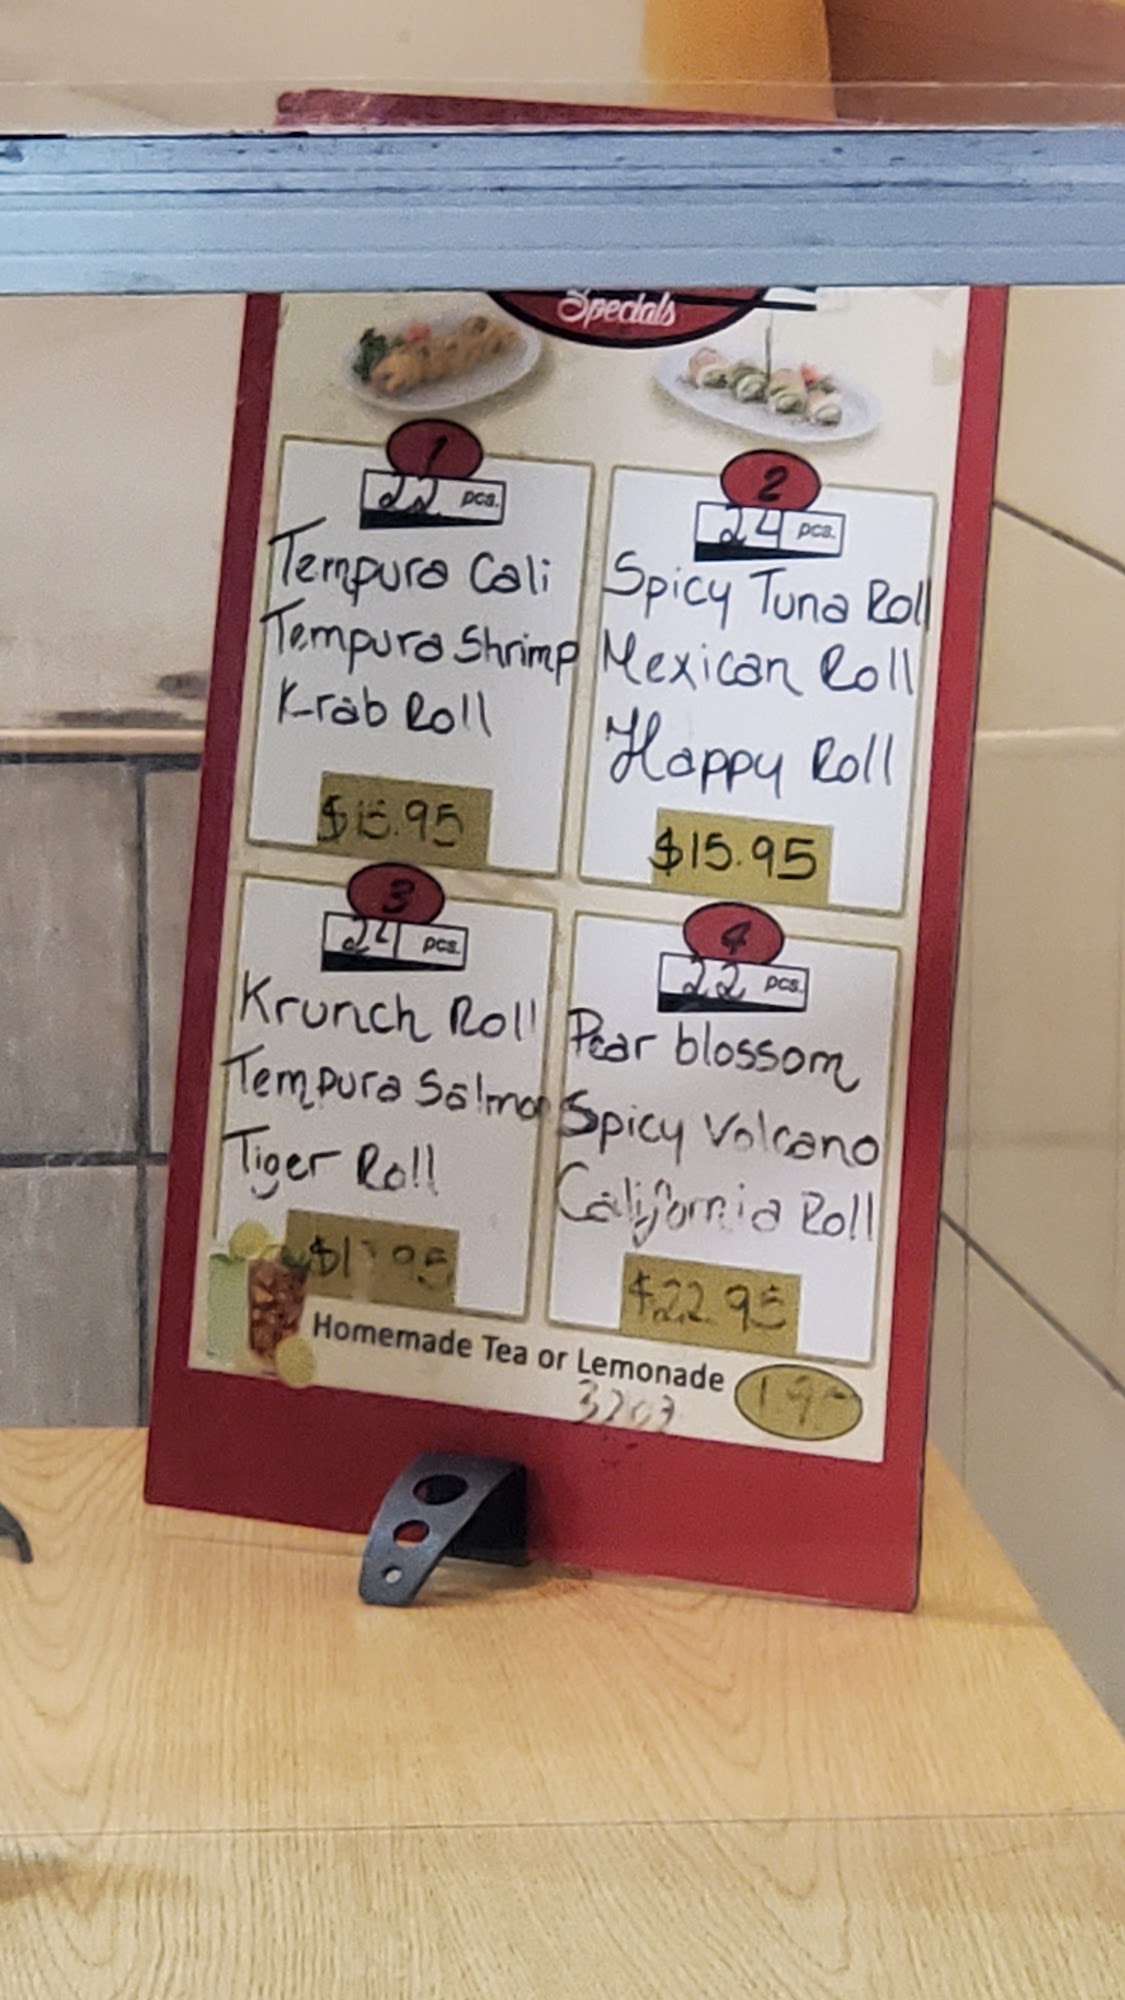 Specials
1
22 pcs.
Tempura Cali
Tempura Shrimp
Krab Roll
2
24 pcs.
Spicy Tuna Roll
Mexican Roll
Happy Roll
$15.95
3
24 pcs.
Krunch Roll
Tempura Salmon
Tiger Roll
4
22 pcs.
Pear blossom
Spicy Volcano
California Roll
$22.95
Homemade Tea or Lemonade